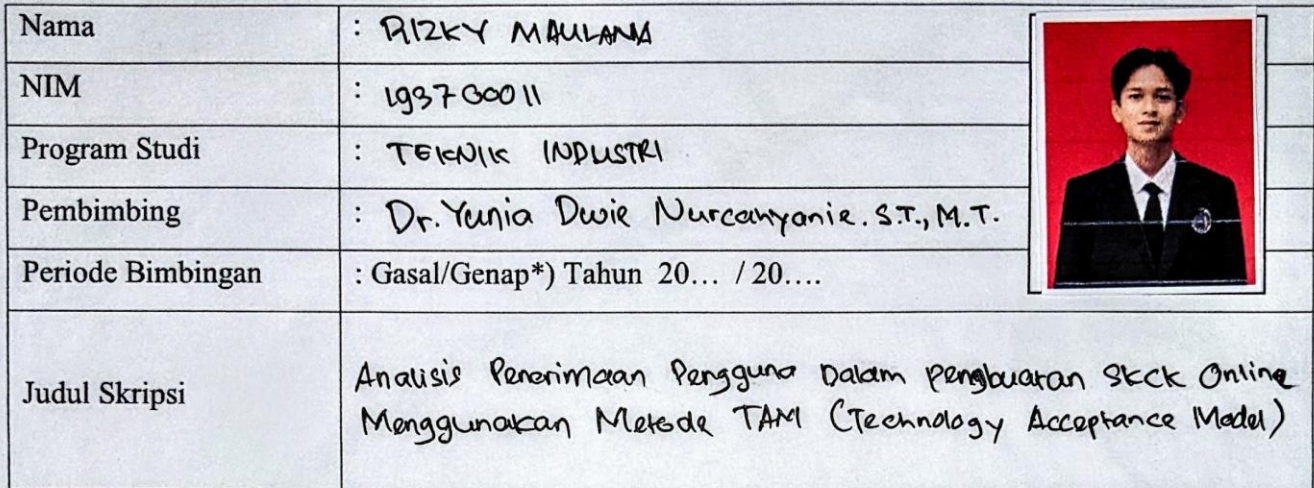 Nama : RIZKY MAULANA
NIM : 193700011
Program Studi : TEKNIK INDUSTRI
Pembimbing : Dr. Yunia Dwie Nurcahyanie. S.T., M.T.
Periode Bimbingan : Gasal/Genap*) Tahun 20... / 20....
Judul Skripsi
Analisis Penerimaan Pengguna Dalam pengbuatan SKCK Online
Menggunakan Metode TAM (Technology Acceptance Model)